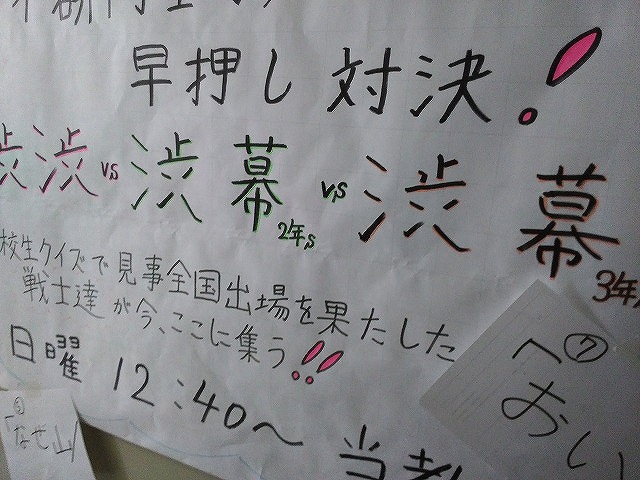 早押し対決!
渋渋 vs 渋幕2年,s vs 渋幕3年,s
校生クイズで見事全国出場を果たした
戦士達が今、ここに集う!!
日曜 12:40〜
⑦
へ
おい
「なぜ山」